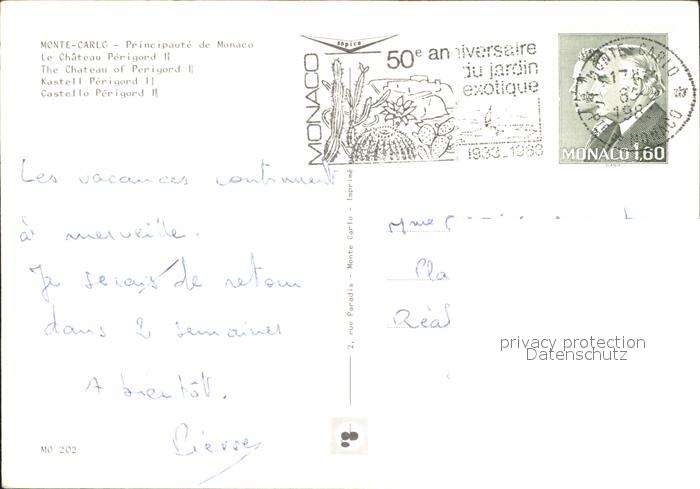 MONTE-CARLO - Principauté de Monaco
Le Château Périgord II
The Chateau of Perigord II
Kastell Périgord II
Castello Périgord II
sapico
MONACO
50e anniversaire
du jardin
exotique
1933-1983
MONTE CARLO
MONACO
MONACO 1,60
Les vacances continuent
à merveille.
Je serais de retour
dans 2 semaines
A bientôt.
Pierre
2, rue Paradis - Monte Carlo - Imprimé
Mme
Pla
Réal
privacy protection
Datenschutz
MO 202